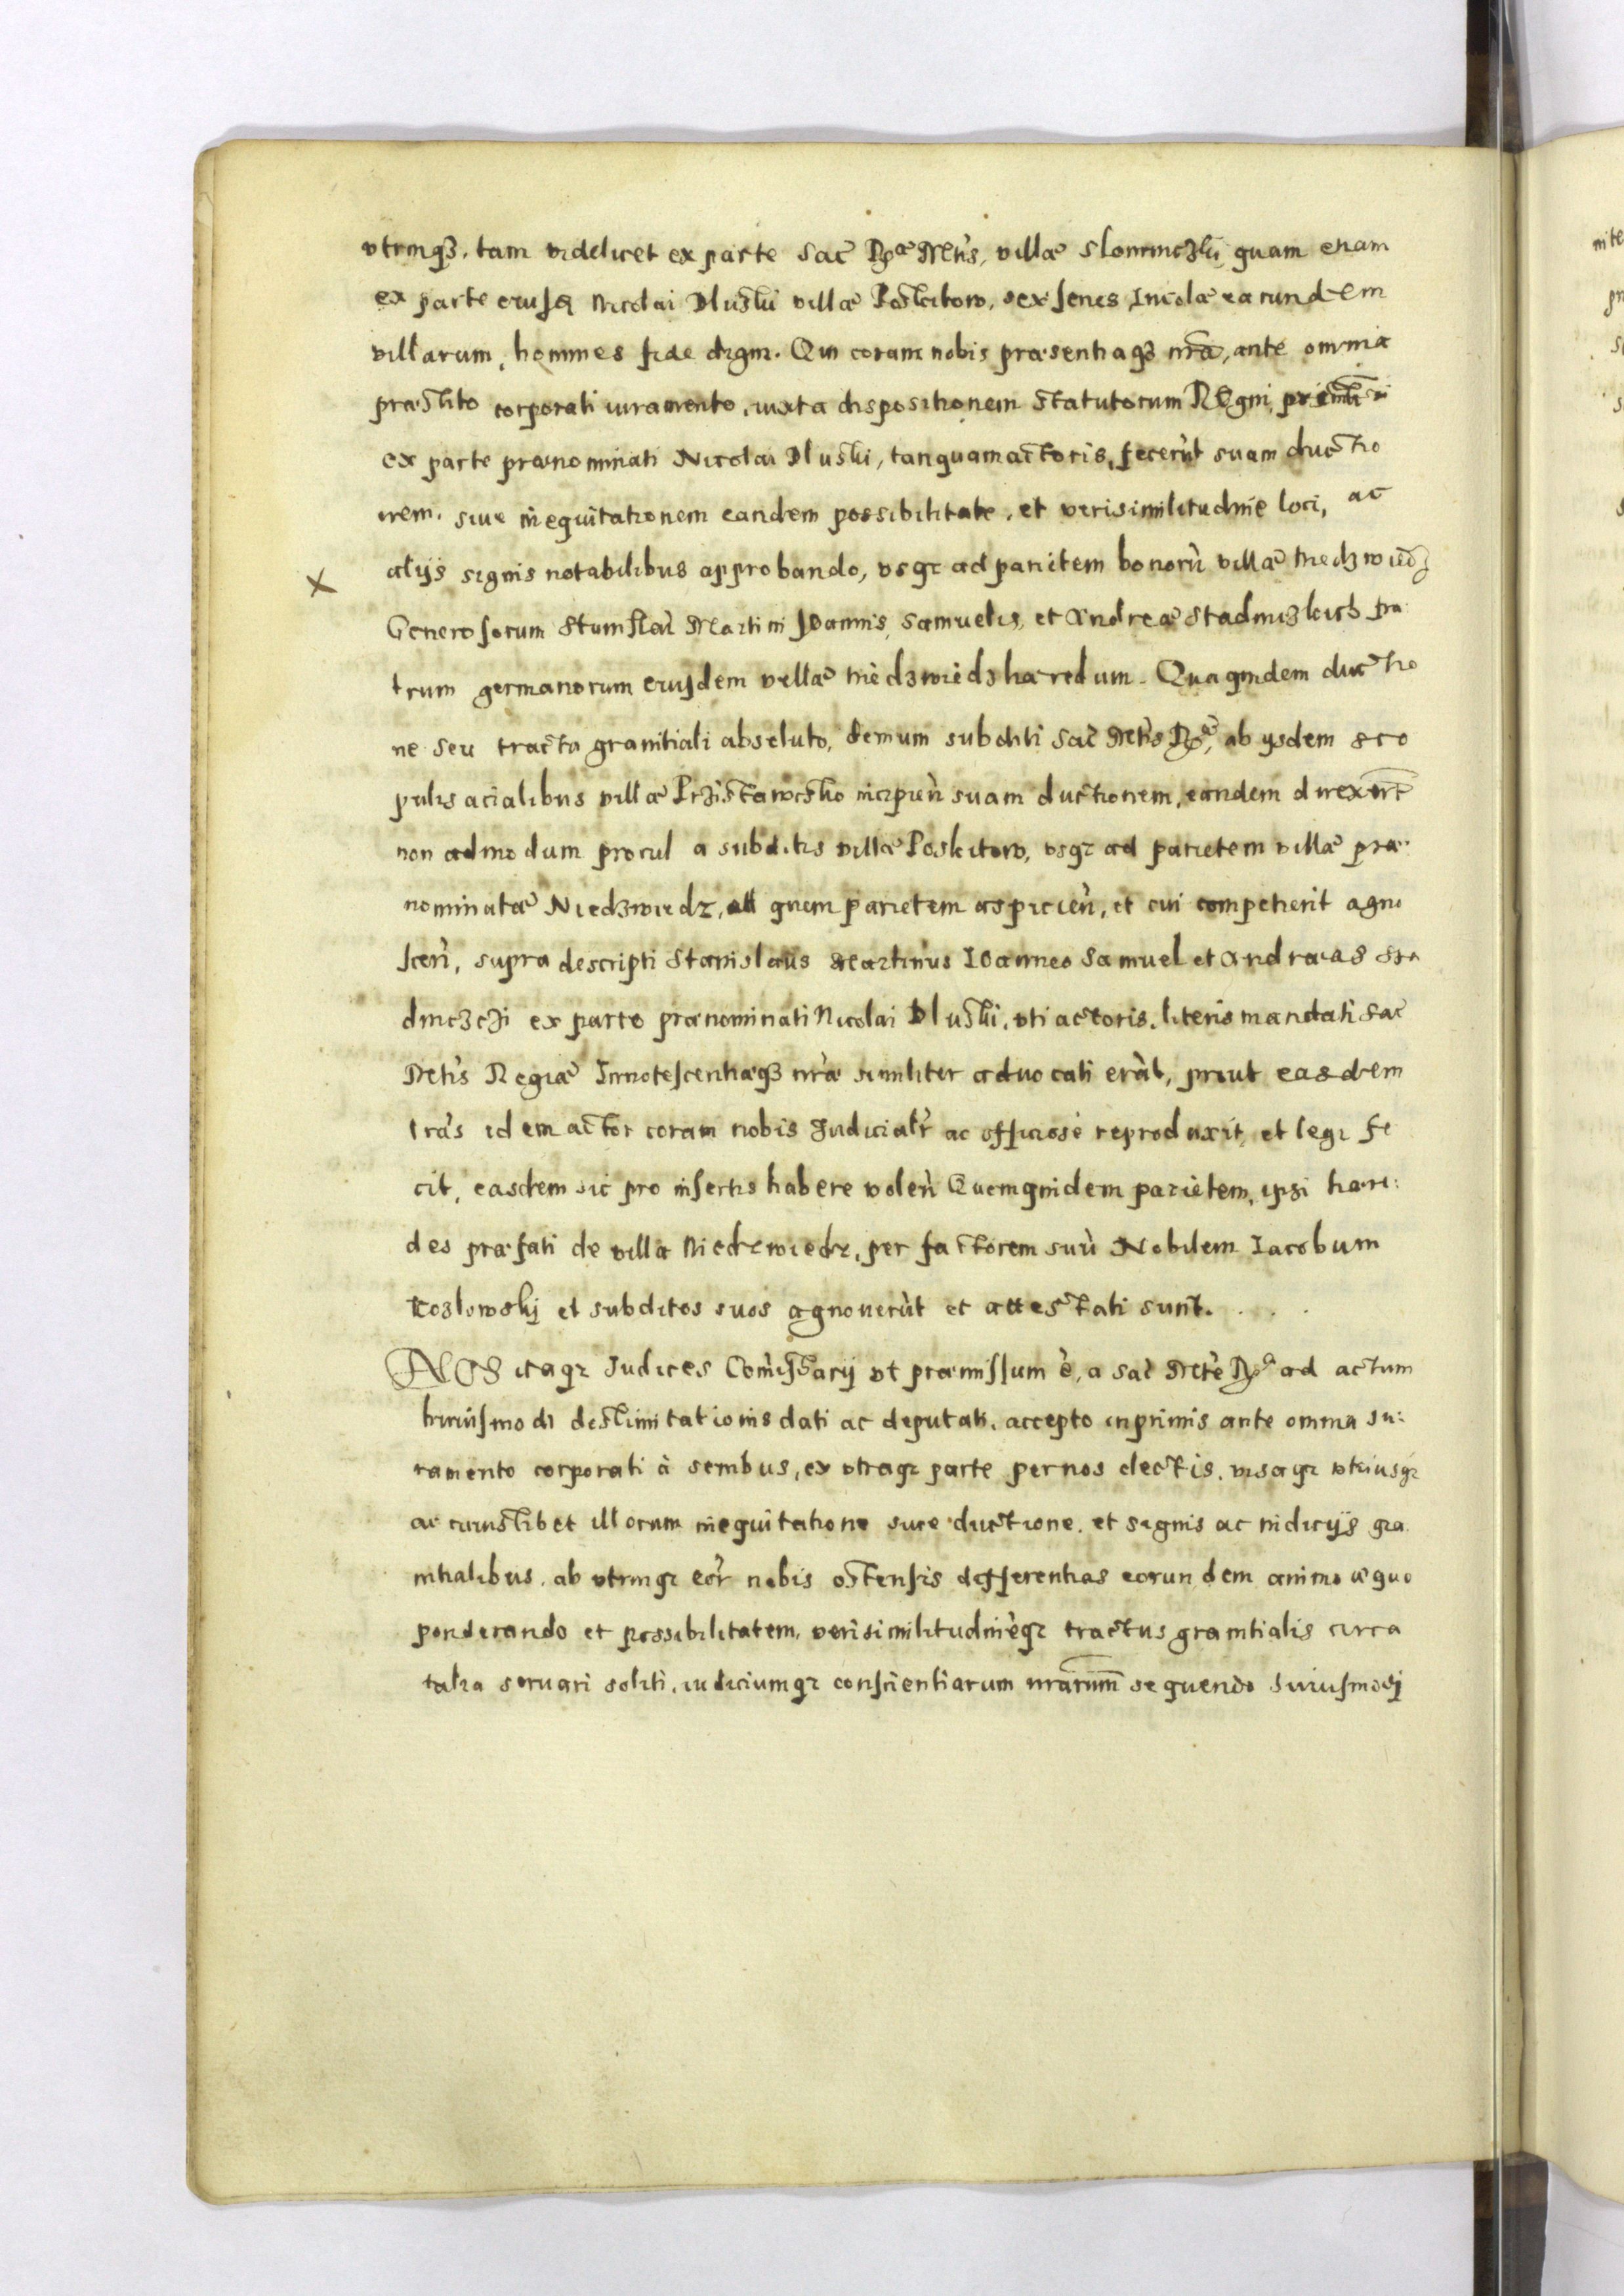 vtrinqȝ. tam videlicet ex parte Sac̄ Rꝫᵉ Mttis, villæ Slomniczki quam etiam
ex parte eiusdē Nicolai Dluski villæ Poskitow, sex senes, Incolæ earundem
villarum, homines fide digni. Qui coram nobis præsentiaqȝ nr̄a, ante omnia
præstito corporali iuramento, iuxta dispositionem Statutorum Regni,
ex parte prænominati Nicolai Dluski, tanquam actoris, fecerùt suam ductio
nem. siue inequitationem eandem possibilitate, et verisimilitudine loci, ac
alijs signis notabilibus approbando, vsqꝫ ad parietem bonorù villæ Niedzwiedz
Generosorum Stanislai Martini Joannis, Samuelis, et Andreæ Stadniczkich fra
trum germanorum eiusdem villæ Niedzwiedz hæredum. Qua quidem ductio
ne seu tractu granitiali absoluto, demum subditi Sac̄ Mttis Rꝫᵉ, ab ijsdem sco
pulis acialibus villæ Przestawsko incipieǹ suam ductionem, eandem direxerūt
non admodum procul a subditis villæ Poskitow, vsqꝫ ad parietem villæ præ:
nominatæ Niedzwiedz, ad quem parietem aspicieǹ, et cui competierit agno
sceǹ, supra descripti Stanislaus Martinus Ioannes Samuel et Andræas Sta
dniczczi ex parte prænominati Nicolai Dluski, vti actoris, literis mandati Sac̄
Mttis Regiæ Innotescentiæqȝ nr̀æ similiter aduocati eràt, prout easdem
lr̀as idem actor coram nobis Judicialr̀ ac officiose reproduxit, et legi fe
cit, easdem sic pro insertis habere voleǹ Quem quidem parietem, ipsi hære:
des præfati de villa Niedzwiedz, per factorem suù Nobilem Iacobum
Kozlowskj et subditos suos agnouerùt et attestati sunt. . . .
NOS itaqꝫ Judices Comissarij vt præmissum è, a Sac̄ Mtte Rꝫᵃ ad actum
huiusmodi destimitationis dati ac deputati, accepto inprimis ante omnia Ju:
ramento corporali à senibus, ex vtraqꝫ parte per nos electis, visaqꝫ vtriusqꝫ
ac cuiuslibet illorum inequitatione siue ductione, et signis ac indicijs gra
nitialibus, ab vtrinqꝫ eor̀ nobis ostensis differentias eorundem animo æquo
ponderando et possibilitatem, verisimilitudinèqꝫ tractus granitialis circa
talia seruari soliti, iudiciumqꝫ conscientiarum nr̄arum sequendo huiusmodj